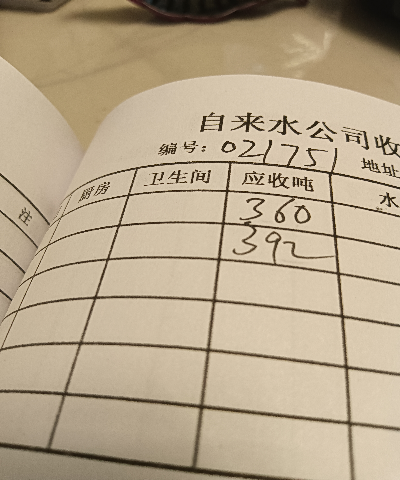 自来水公司收
编号：021751 地址
注 厨房 卫生间 应收吨 水
360
392